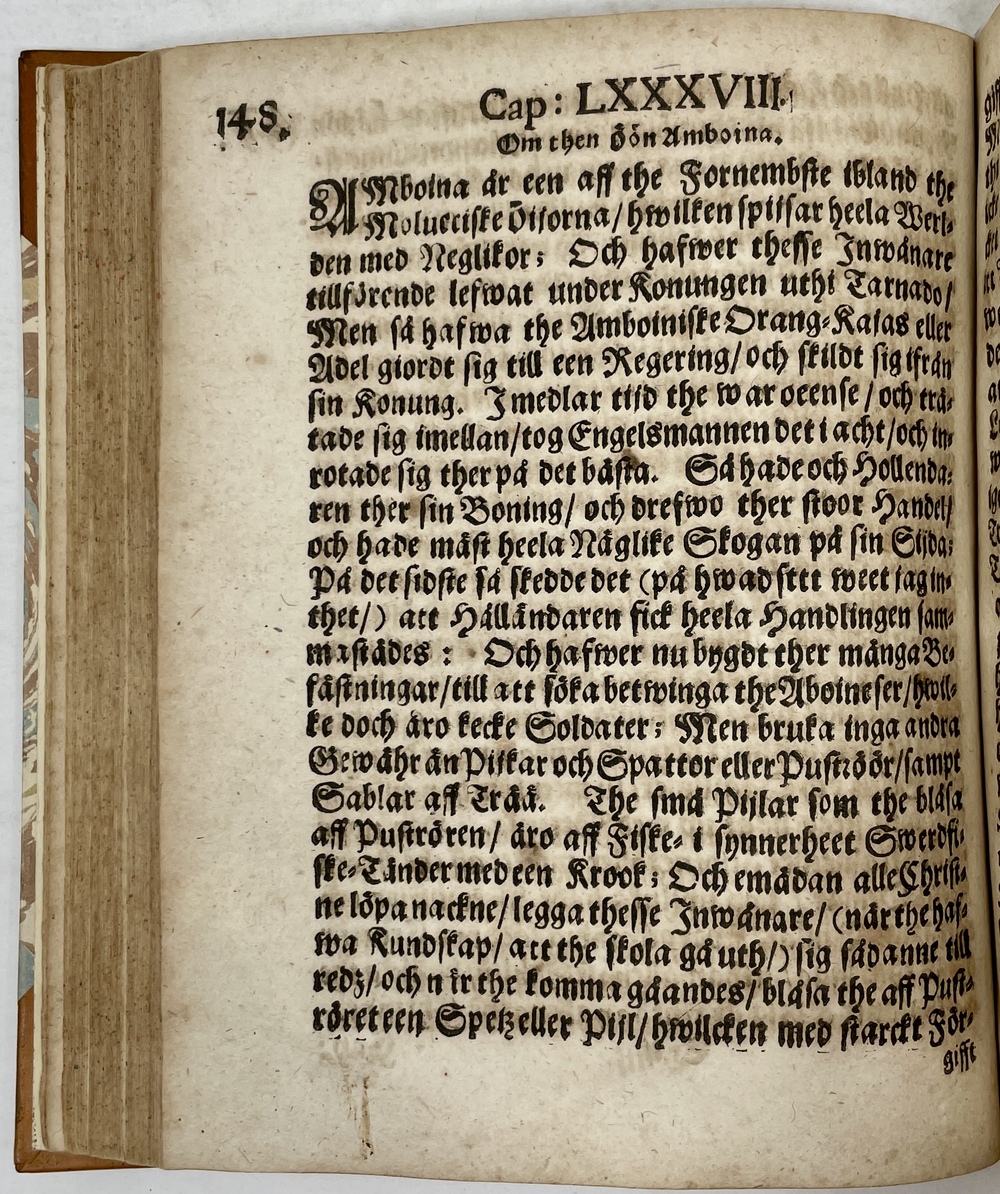 148.
Cap: LXXXVIII.
Om then öön Amboina.
AMboina är een aff the Fornembste ibland the
Molucciske öijorna/ hwilken spijsar heela Werl-
den med Neglikor; Och hafwer thesse Inwånare
tillförende lefwat under Konungen uthi Tarnado/
Men så hafwa the Amboiniske Orang-Kaias eller
Adel giordt sig till een Regering/ och skildt sig ifrån
sin Konung. Imedlar tijd the war oeense/ och trä-
tade sig imellan/ tog Engelsmannen det i acht/ och in-
rotade sig ther på det bästa. Så hade och Hollenda-
ren ther sin Boning/ och drefwo ther stoor Handel/
och hade mäst heela Näglike Skogan på sin Sijda;
På det sidste så skedde det (på hwad sttt weet jag in-
thet/) att Hålländaren fick heela Handlingen sam-
mastädes: Och hafwer nu bygdt ther många Be-
fästningar/ till att söka betwinga the Aboineser/ hwil-
ke doch äro kecke Soldater; Men bruka inga andra
Gewähr än Pijkar och Spattor eller Puströör/ sampt
Sablar aff Trää. The små Pijlar som the blåsa
aff Puströren/ äro aff Fiske- i synnerheet Swerdfi-
ske-Tänder med een Krook; Och emädan alle Christ-
ne löpa nackne/ legga thesse Inwånare/ (när the haf-
wa Kundskap/ att the skola gå uth/) sig sådanne till
redz/ och när the komma gåandes/ blåsa the aff Pust-
röret een Spetz eller Pijl/ hwilcken med starckt För-
gifft